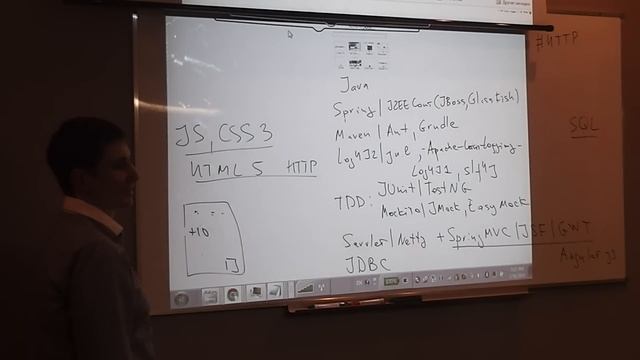 #HTTP
Java
Spring | J2EE Cont (JBoss, Glissfish)
JS, CSS3
Maven | Ant, Grudle
SQL
Log4J2 | JUL, -Apache-Com-Logging-
HTML5 HTTP
Log4J1, slf4J
JUnit | TestNG
TDD: Mockito | JMock, EasyMock
+10
Servlet | Netty + Spring MVC | JSF | GWT
Angular JS
JDBC